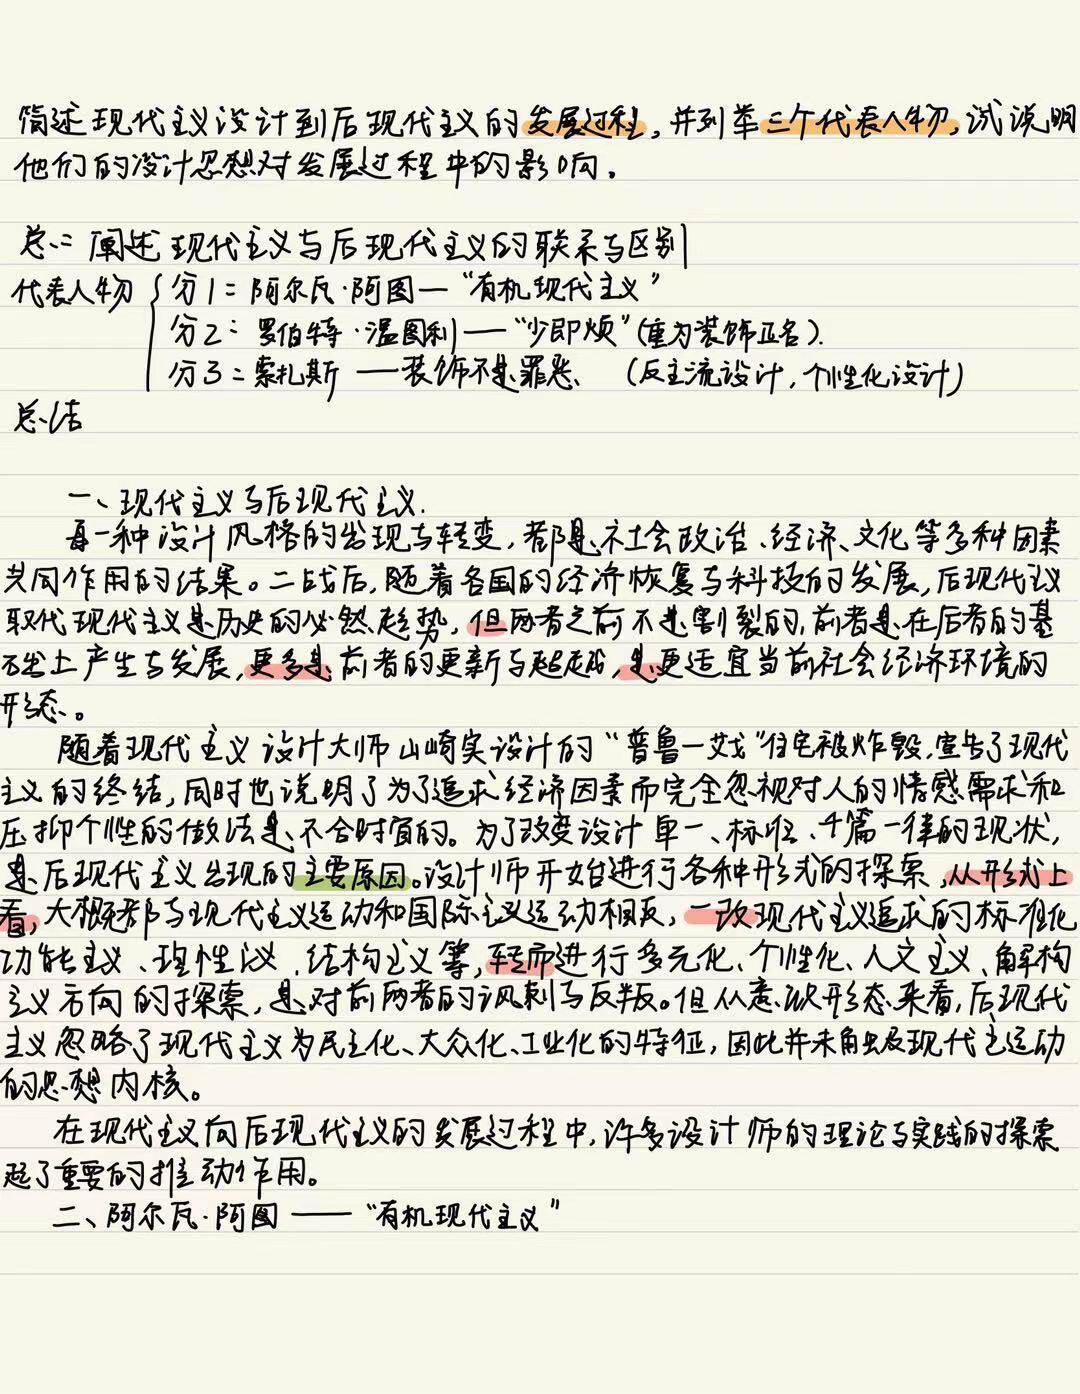 简述现代主义设计到后现代主义的发展过程，并列举三个代表人物，试说明
他们的设计思想对发展过程中的影响。
总：阐述现代主义与后现代主义的联系与区别
代表人物 分1：阿尔瓦·阿图—“有机现代主义”
分2：罗伯特·温图利——“少即烦”(重为装饰正名).
分3：索扎斯 ——装饰不是罪恶、(反主流设计，个性化设计)
总结
一、现代主义与后现代主义.
每一种设计风格的出现与转变，都是社会政治、经济、文化等多种因素
共同作用的结果。二战后，随着各国的经济恢复与科技的发展，后现代主义
取代现代主义是历史的必然趋势，但两者之前不是割裂的，前者是在后者的基
础上产生与发展，更多是前者的更新与超越，是更适宜当前社会经济环境的
形态。
随着现代主义设计大师山崎实设计的“普鲁一艾戈”住宅被炸毁，宣告了现代
主义的终结，同时也说明了为了追求经济因素而完全忽视对人的情感需求和
压抑个性的做法是不合时宜的。为了改变设计单一、标准、千篇一律的现状，
是后现代主义出现的主要原因。设计师开始进行各种形式的探索，从形式上
看，大概都与现代主义运动和国际主义运动相反，一改现代主义追求的标准化
功能主义、理性主义、结构主义等，转而进行多元化、个性化、人文主义、解构
主义方向的探索，是对前两者的讽刺与反叛。但从意识形态来看，后现代
主义忽略了现代主义为民主化、大众化、工业化的特征，因此并未触及现代主运动
的思想内核。
在现代主义向后现代主义的发展过程中，许多设计师的理论与实践的探索
起了重要的推动作用。
二、阿尔瓦·阿图 ——“有机现代主义”